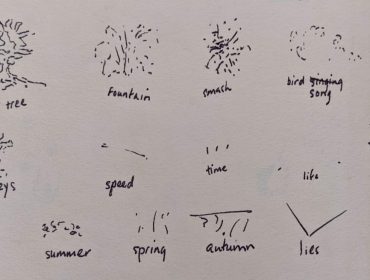 tree
fountain
smash
bird singing
song
speed
time
life
summer
spring
autumn
lies